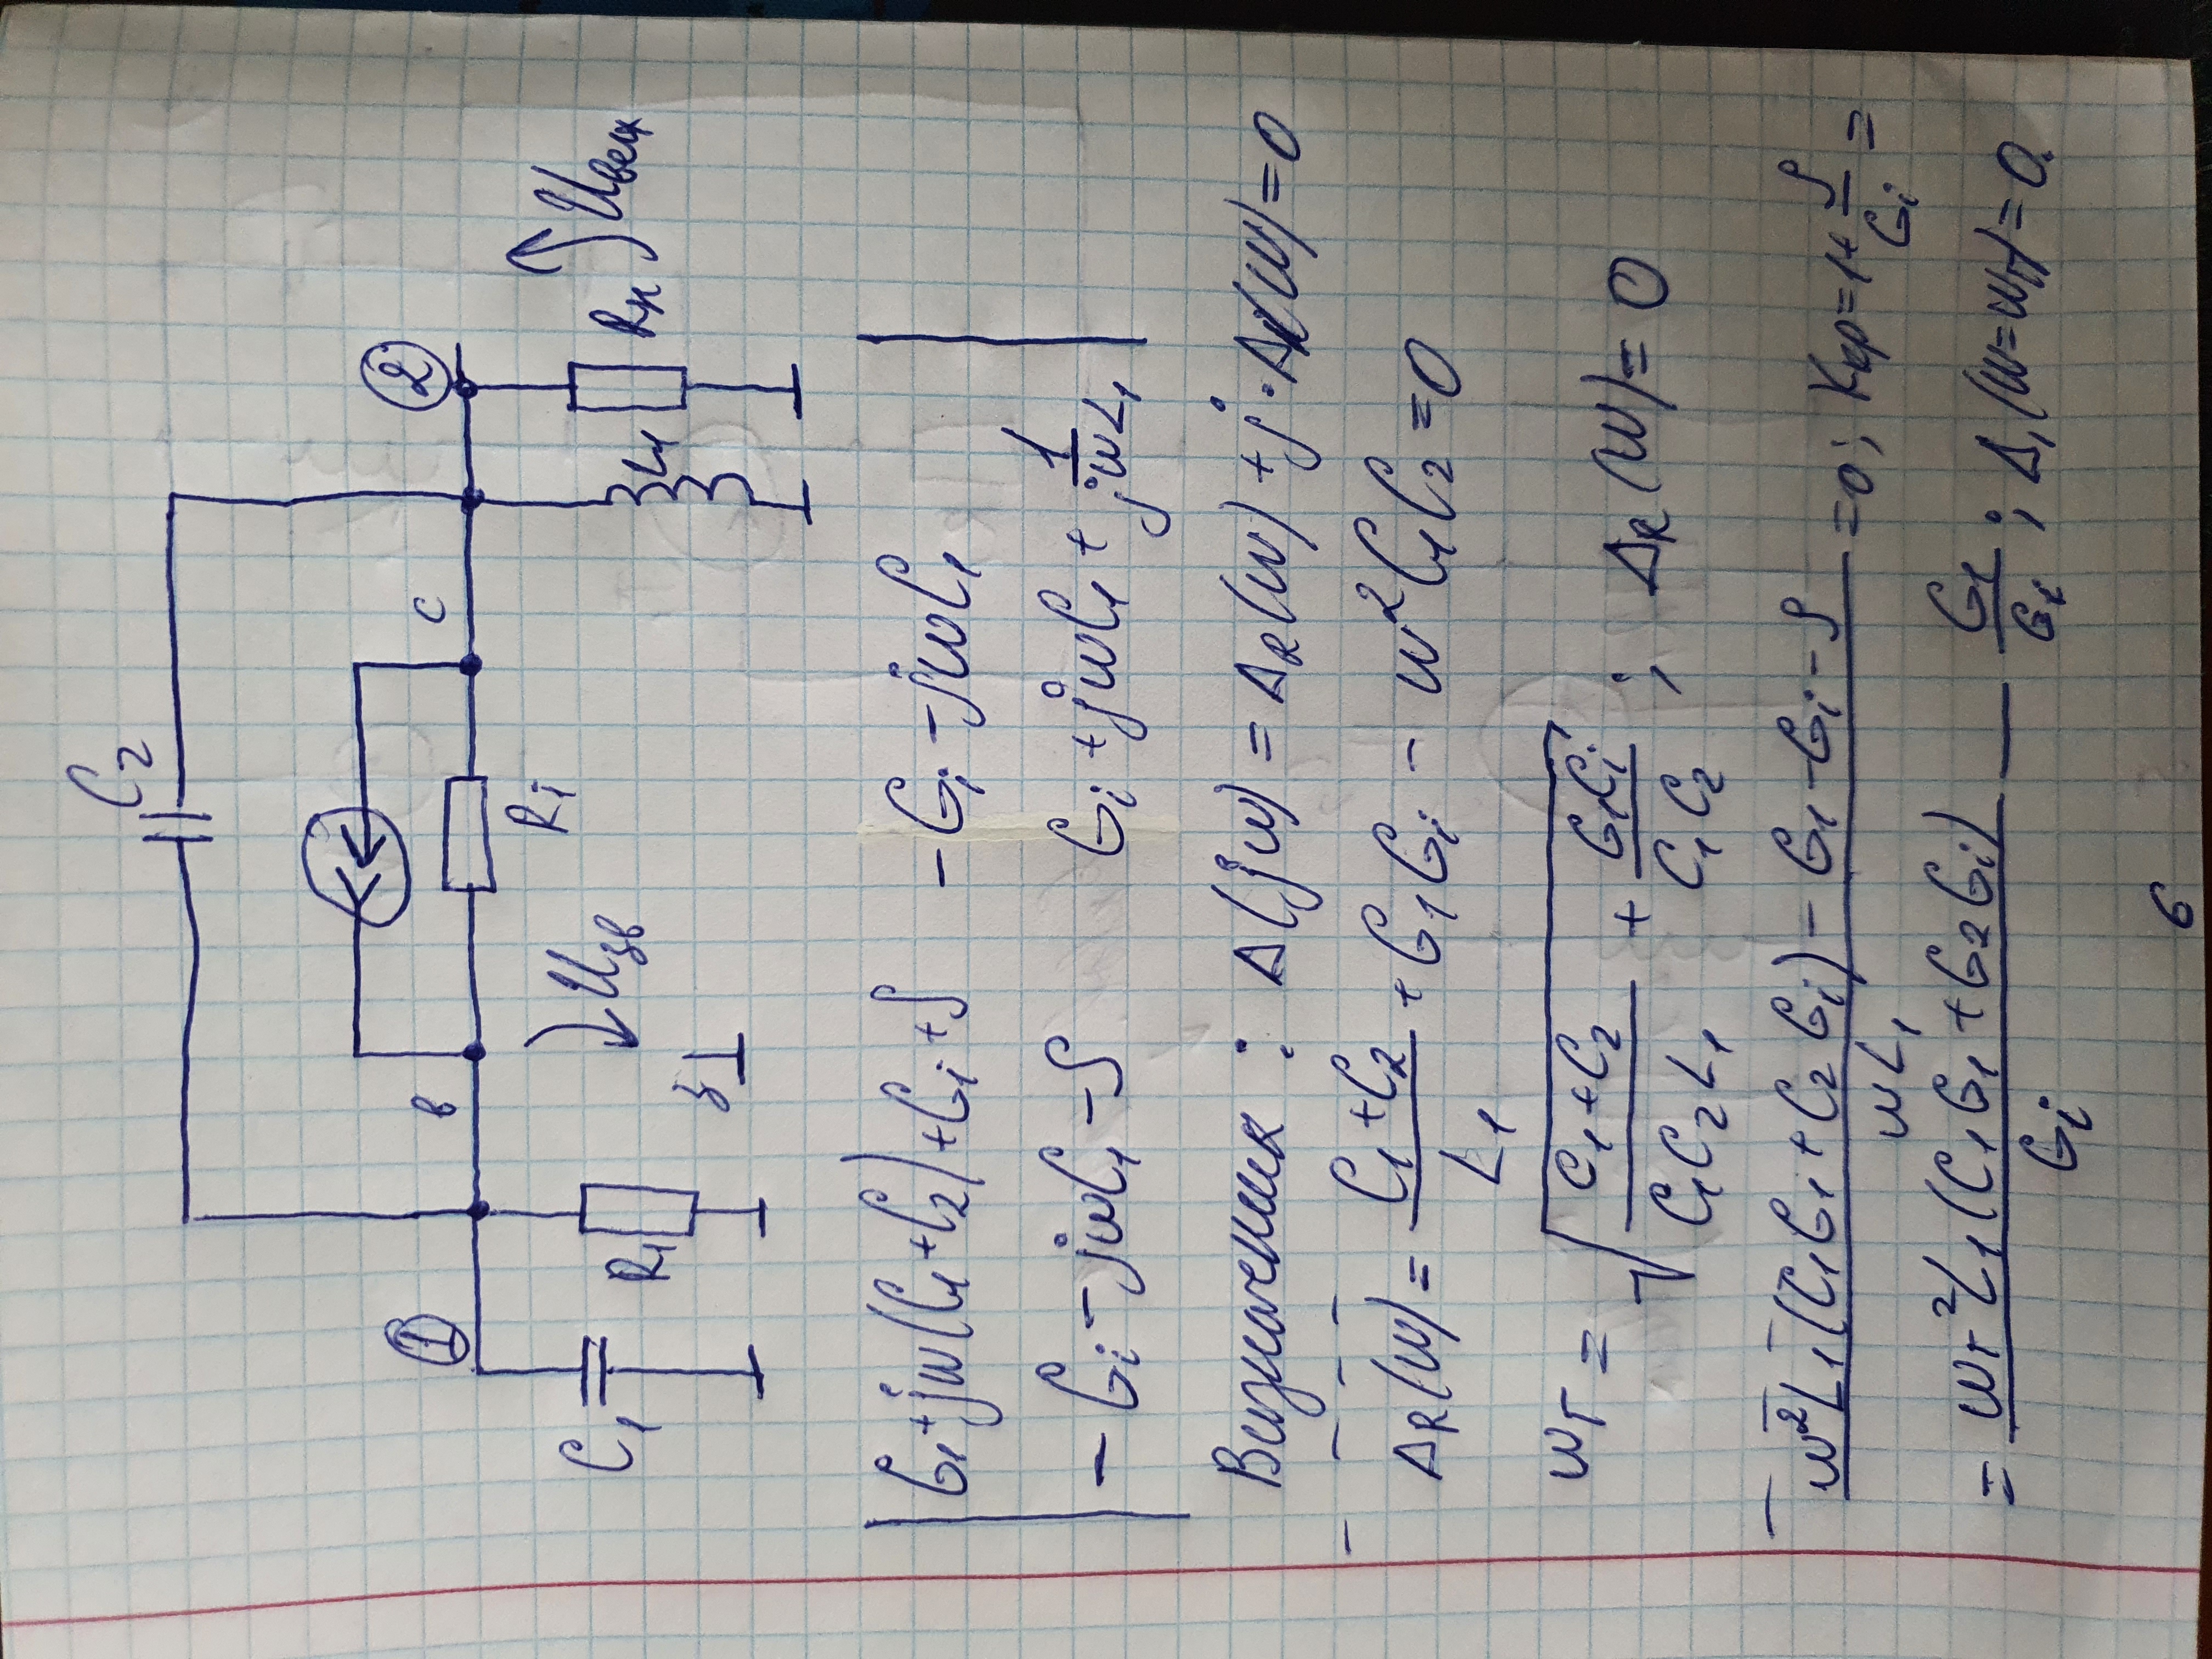 C₂
1
в
с
2
C₁
R₁
Uзв
Ri
L₁
Rн
Uвих
з
G₁+jω(C₁+C₂)+Gi+S   -Gi-jωC₁
-Gi-jωC₁-S   Gi+jωC₁+1/(jωL₁)
Визначник : Δ(jω) = ΔR(ω) + j·ΔI(ω) = 0
ΔR(ω) = (C₁+C₂)/L₁ + G₁Gi - ω²C₁C₂ = 0
ωг = √((C₁+C₂)/(C₁C₂L₁) + G₁Gi/(C₁C₂)) ; ΔR(ω) = 0
(ω²L₁(C₁G₁+C₂Gi) - G₁ - Gi - S)/(ωL₁) = 0; Kкр = 1+S/Gi =
= ωг²L₁(C₁G₁+G₂Gi)/Gi — G₁/Gi ; Δ₁(ω=ωг) = 0.
6